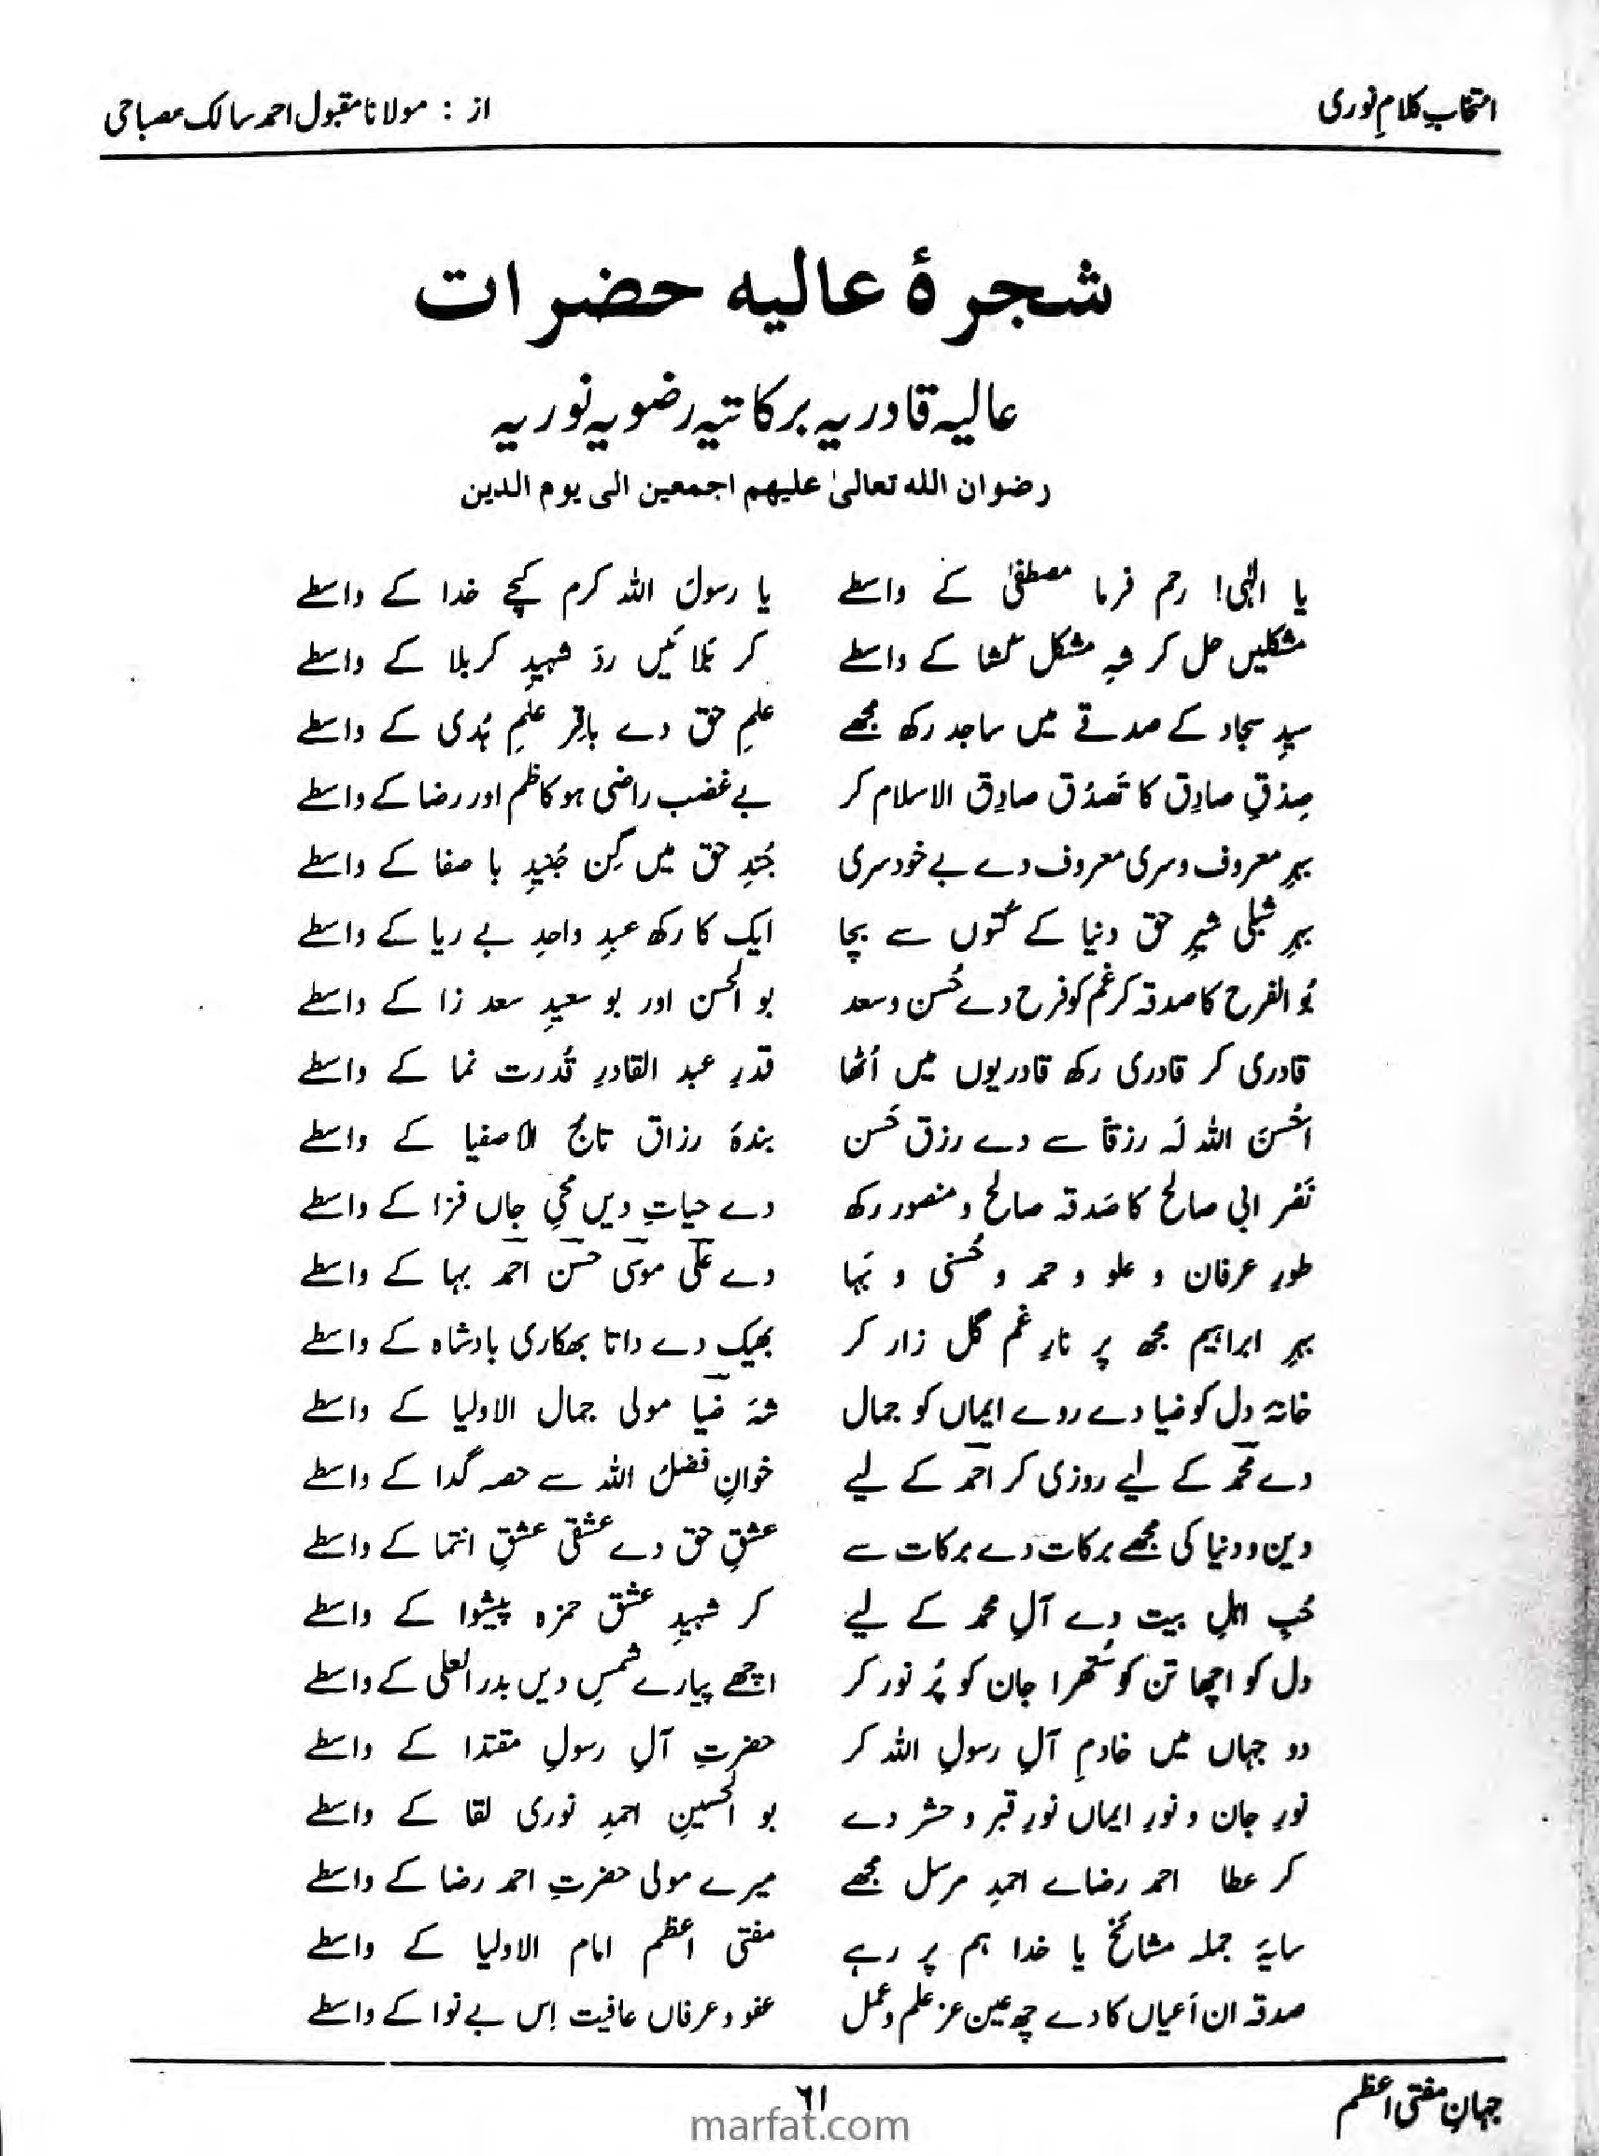 انتخابِ کلامِ نوری از : مولانا مقبول احمد سالک مصباحی
شجرۂ عالیہ حضرات
عالیہ قادریہ برکاتیہ رضویہ نوریہ
رضوان الله تعالیٰ علیهم اجمعین الی یوم الدین
یا الٰہی! رحم فرما مصطفیٰ کے واسطے یا رسولَ اللہ کرم کیجے خدا کے واسطے
مشکلیں حل کر شہِ مشکل کُشا کے واسطے کر بَلائیں ردّ شہیدِ کربلا کے واسطے
سیدِ سجاد کے صدقے میں ساجد رکھ مجھے علمِ حق دے باقرِ علمِ ہُدی کے واسطے
صِدْقِ صادِق کا تَصدُّق صادِق الاسلام کر بے غضب راضی ہو کاظم اور رضا کے واسطے
بہرِ معروف و سری معروف دے بے خود سری جُندِ حق میں گِن جُنیدِ با صفا کے واسطے
بہرِ شبلی شیرِ حق دنیا کے کُتوں سے بچا ایک کا رکھ عبدِ واحدِ بے ریا کے واسطے
بُو الفرح کا صدقہ کر غم کو فرح دے حُسن و سعد بو الحسن اور بو سعیدِ سعد زا کے واسطے
قادری کر قادری رکھ قادریوں میں اُٹھا قدرِ عبد القادرِ قُدرت نما کے واسطے
اَحْسَنَ اللہ لَہ رزقاً سے دے رزق حَسن بندۂ رزاق تاجُ الاصفیا کے واسطے
نَصْر ابی صالح کا صَدقہ صالح و منصور رکھ دے حیاتِ دیں مُحیِ جاں فزا کے واسطے
طورِ عرفان و علو و حمد و حُسنٰی و بَہا دے علی موسیٰ حسن احمد بہا کے واسطے
بہرِ ابراہیم مجھ پر نارِ غم گل زار کر بھیک دے داتا بھکاری بادشاہ کے واسطے
خانۂ دل کو ضیا دے روے ایماں کو جمال شہ ضیا مولی جمال الاولیا کے واسطے
دے محمد کے لیے روزی کر احمد کے لیے خوانِ فضلُ اللہ سے حصہ گدا کے واسطے
دین و دنیا کی مجھے برکات دے برکات سے عشقِ حق دے عشقی عشقِ انتما کے واسطے
حُبِ اہلِ بیت دے آلِ محمد کے لیے کر شہیدِ عشق حمزہ پیشوا کے واسطے
دل کو اچھا تن کو سُتھرا جان کو پُر نور کر اچھے پیارے شمسِ دیں بدر العلی کے واسطے
دو جہاں میں خادمِ آلِ رسولِ اللہ کر حضرتِ آلِ رسولِ مقتدا کے واسطے
نورِ جان و نورِ ایماں نورِ قبر و حشر دے بو الحسینِ احمدِ نوری لقا کے واسطے
کر عطا احمد رضاے احمدِ مرسل مجھے میرے مولی حضرتِ احمد رضا کے واسطے
سایۂ جملہ مشائخ یا خدا ہم پر رہے مفتی اعظم امام الاولیا کے واسطے
صدقہ ان اَعیاں کا دے چھ عین عز علم و عمل عفو و عرفاں عافیت اِس بے نوا کے واسطے
جہانِ مفتی اعظم ٦١
marfat.com